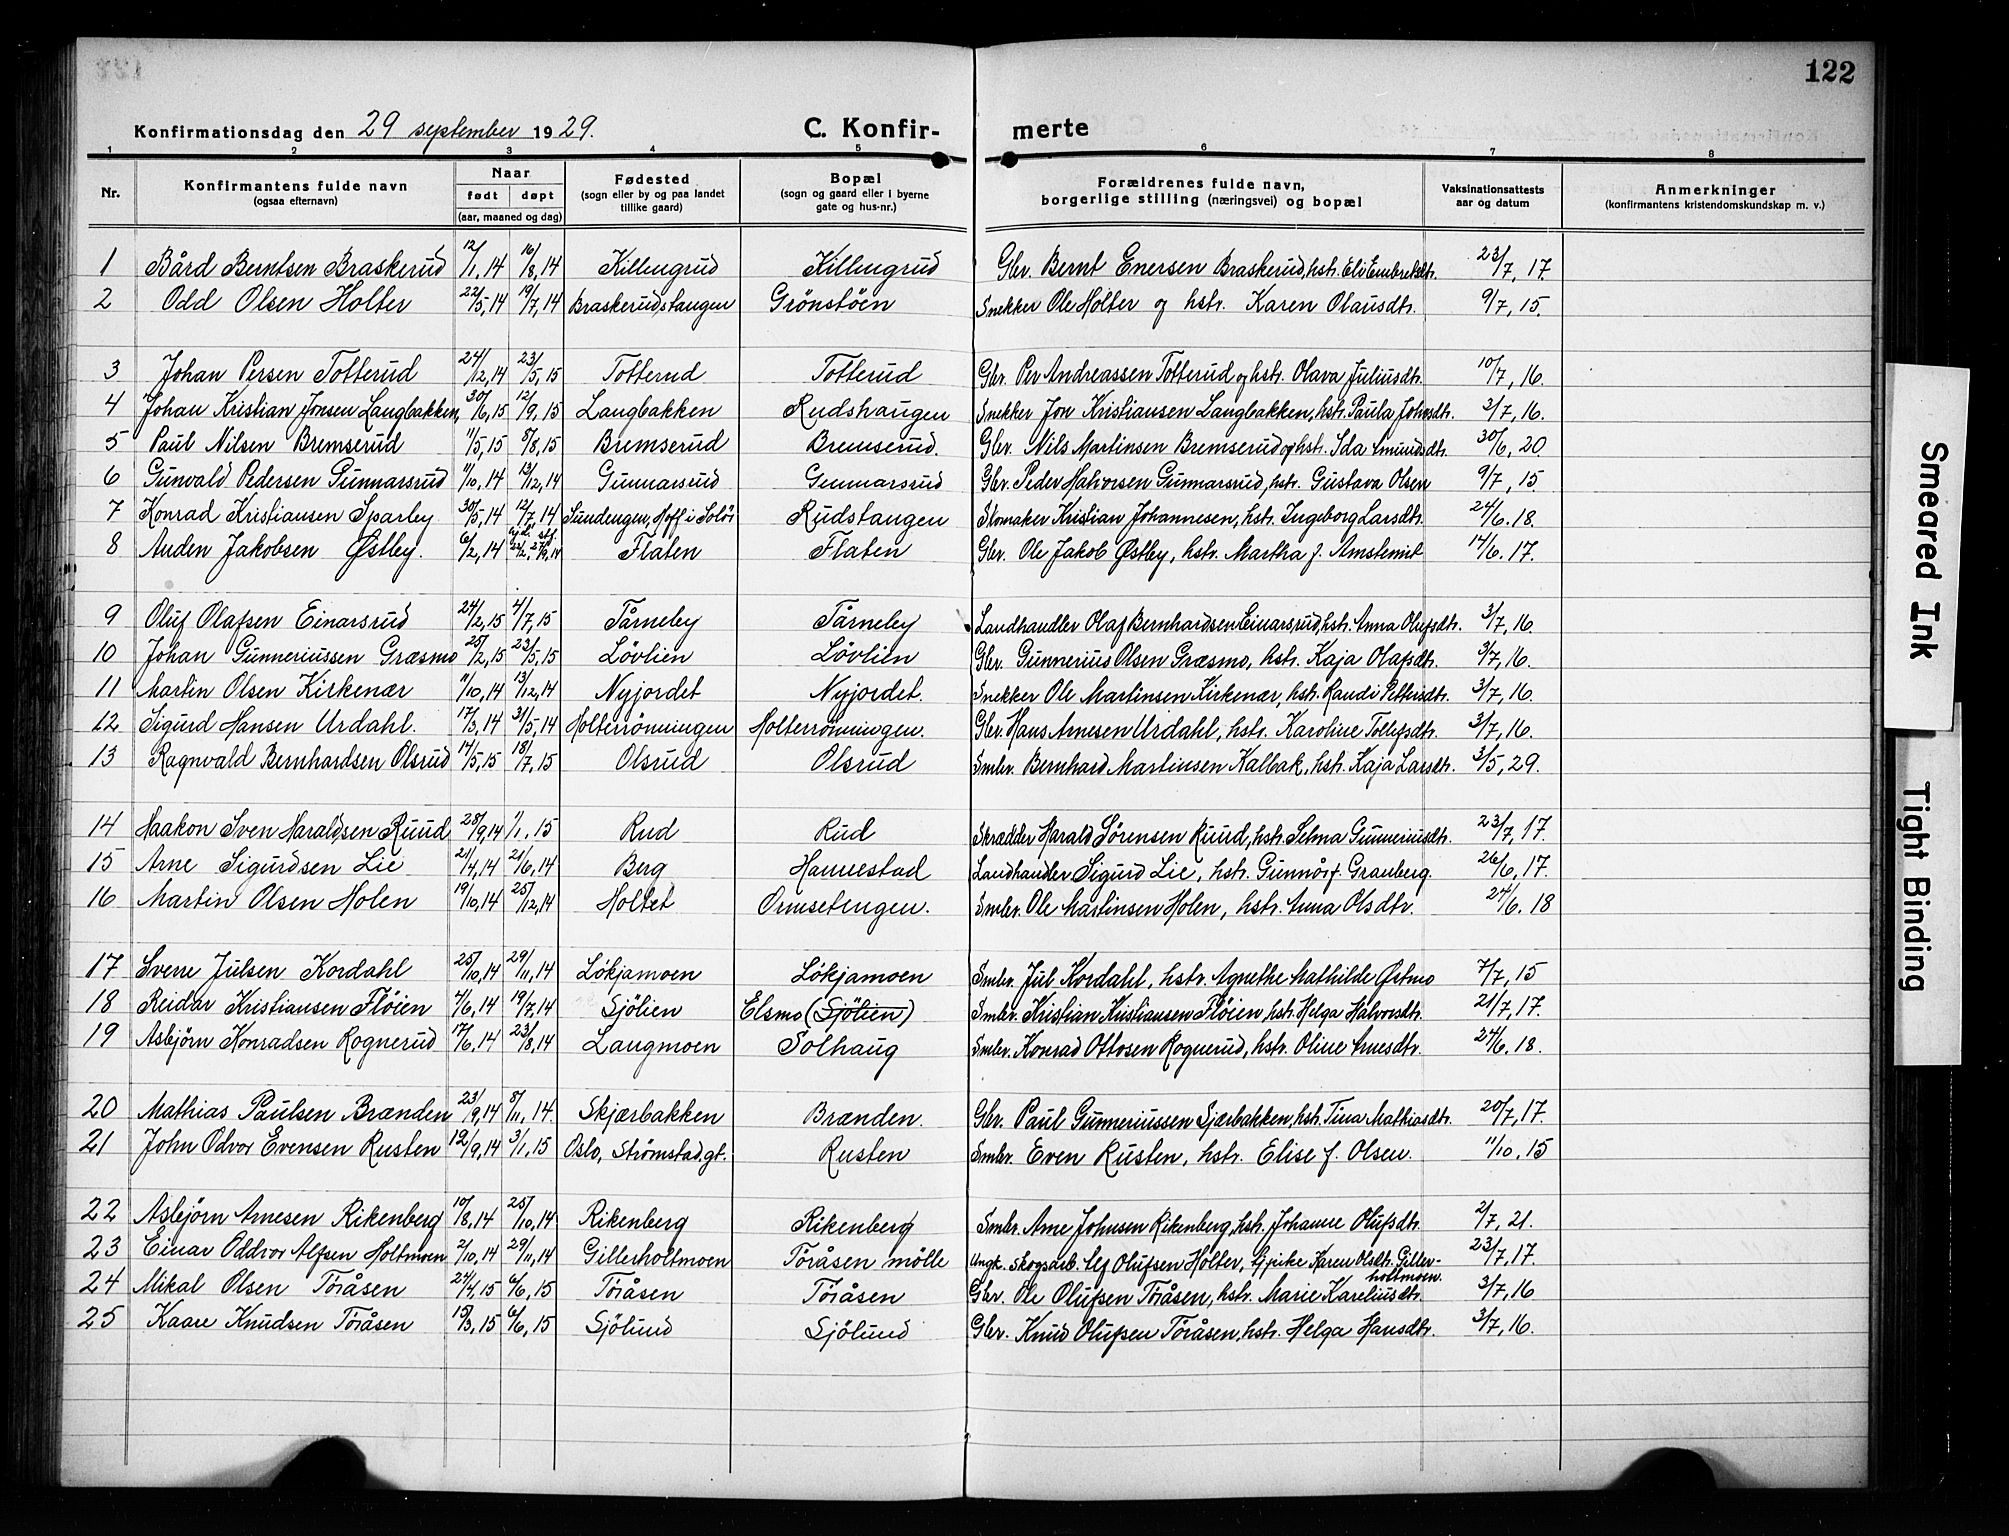 122
Konfirmationsdag den 29 september 1929.
C. Konfir-merte
1 2 3 4 5 6 7 8
Nr. | Konfirmantens fulde navn (ogsaa efternavn) | Naar født døpt (aar, maaned og dag) | Fødested (sogn eller by og paa landet tillike gaard) | Bopæl (sogn og gaard eller i byerne gate og hus-nr.) | Forældrenes fulde navn, borgerlige stilling (næringsvei) og bopæl | Vaksinationsattests aar og datum | Anmerkninger (konfirmantens kristendomskundskap m. v.)
1 Bård Berntsen Braskerud 12/1,14 16/8,14 Killingrud Killingrud Gbr. Bernt Enersen Braskerud, hstr. Eli Embretsdtr. 23/7,17.
2 Odd Olsen Holter 22/5,14 19/7,14 Braskerudstangen Grönstöen Snekker Ole Holter og hstr. Karen Olausdtr. 9/7,15.
3 Johan Persen Totterud 24/12,14 23/5,15 Totterud Totterud Gbr. Per Andreassen Totterud og hstr. Olava Juliusdtr. 10/7,16.
4 Johan Kristian Jonsen Langbakken, 30/6,15 12/9,15 Langbakken Rudshaugen Snekker Jon Kristiansen Langbakken, hstr. Paula Johnsdtr. 3/7,16.
5 Paul Nilsen Bremserud 11/5,15 8/8,15 Bremserud Bremserud. Gbr. Nils Martinsen Bremserud og hstr. Ida Amundsdtr. 30/6,20
6 Gunvald Pedersen Gunnarsrud 11/10,14 13/12,14 Gunnarsrud Gunnarsrud Gbr. Peder Halvorsen Gunnarsrud, hstr. Gustava Olsen 9/7,15.
7 Konrad Kristiansen Sparby 30/5,14 12/7,14 Sundengen, Hoff i Solör Rudstangen Skomaker Kristian Johannesen, hstr. Ingeborg Larsdtr. 24/6.18.
8 Auden Jakobsen Østby. 6/2,14 22/2. 27/9,14 Flaten Flaten Gbr. Ole Jakob Østby, hstr. Martha f. 14/6.17.
9 Oluf Olafsen Einarsrud 24/2,15 4/7,15 Tårneby Tårneby Landhandler Olaf Bernhardsen Einarsrud, hstr. Anna Olufsdtr. 3/7,16.
10 Johan Gunneriussen Græsmo 25/2,15 23/5,15 Lövlien Lövlien Gbr. Gunnerius Olsen Græsmo, hstr. Kaja Olafsdtr. 3/7,16.
11 Martin Olsen Kirkenær 11/10,14 13/12,14 Nyjordet Nyjordet. Snekker Ole Martinsen Kirkenær, hstr. Randi Pettersdtr. 3/7,16.
12 Sigurd Hansen Urdahl. 17/3,14 31/5,14 Holterrönningen Holterrönningen. Gbr. Hans Arnesen Urdahl, hstr. Karoline Tollefsdtr. 3/7,16.
13 Ragnvald Bernhardsen Olsrud 14/5,15 18/7,15 Olsrud Olsrud Smbr. Bernhard Martinsen Kalbak, hstr. Kaja Larsdtr. 3/5,29.
14 Haakon Sven Haraldsen Ruud 28/9,14 1/1,15 Rud Rud Skrædder Harald Sörensen Ruud, hstr. Selma Gunneriusdtr. 23/7,17.
15 Arne Sigurdsen Lie 21/4,14 21/6,14 Berg Hannestad Landhandler Sigurd Lie, hstr. Gunnår f. Granberg. 26/6,17.
16 Martin Olsen Holen 19/10,14 25/12,14 Holtet Ormsetengen. Smbr. Ole Martinsen Holen, hstr. Anna Olsdtr. 24/6.18
17 Sverre Julsen Kordahl 25/10,14 29/11,14 Lökjamoen Lökjamoen Smbr. Jul Kordahl, hstr. Agnethe Mathilde 7/7,15
18 Reidar Kristiansen Flöien 4/6,14 19/7,14 Sjölien Elsmo (Sjölien) Smbr. Kristian Kristiansen Flöien hstr. Helga Halvorsdtr. 21/7,17.
19 Asbjörn Konradsen Rognerud 17/6,14 23/8,14 Langmoen Solhaug Smbr. Konrad Ottosen Rognerud, hstr. Oline Arnesdtr. 24/6.18.
20 Mathias Paulsen Brænden 23/9,14 8/11,14. Skjærbakken Brænden. Gbr. Paul Gunneriussen Sjærbakken, hstr. Tina Mathiasdtr. 20/7,17.
21 John Odvar Evensen Rusten 12/9,14 3/1,15 Oslo, Strömstad.gt. Rusten Smbr. Even Rusten, hstr. Elise f. Olsen. 11/10.15
22 Asbjörn Arnesen Rikenberg 10/8,14 25/10,14 Rikenberg Rikenberg Smbr. Arne Johnsen Rikenberg, hstr. Johanne Olufsdtr. 2/7,21.
23 Einar Oddvar Alfsen Holtmoen 2/10,14 29/11,14 Gillerholtmoen Töråsen mölle Ungk. skogsarb. Alf Olufsen Holter, og pike Karen Olsdtr. Giller-holtmoen. 23/7,17.
24 Mikal Olsen Töråsen 24/4,15 6/6,15 Töråsen Töråsen Gbr. Ole Olufsen Töråsen, hstr. Marie Kareliusdtr. 3/7,16
25 Kaare Knudsen Töråsen 15/3,15 6/6,15 Sjölund Sjölund Gbr. Knud Olufsen Töråsen, hstr. Helga Hansdtr. 3/7,16.
Smeared Ink
Tight Binding